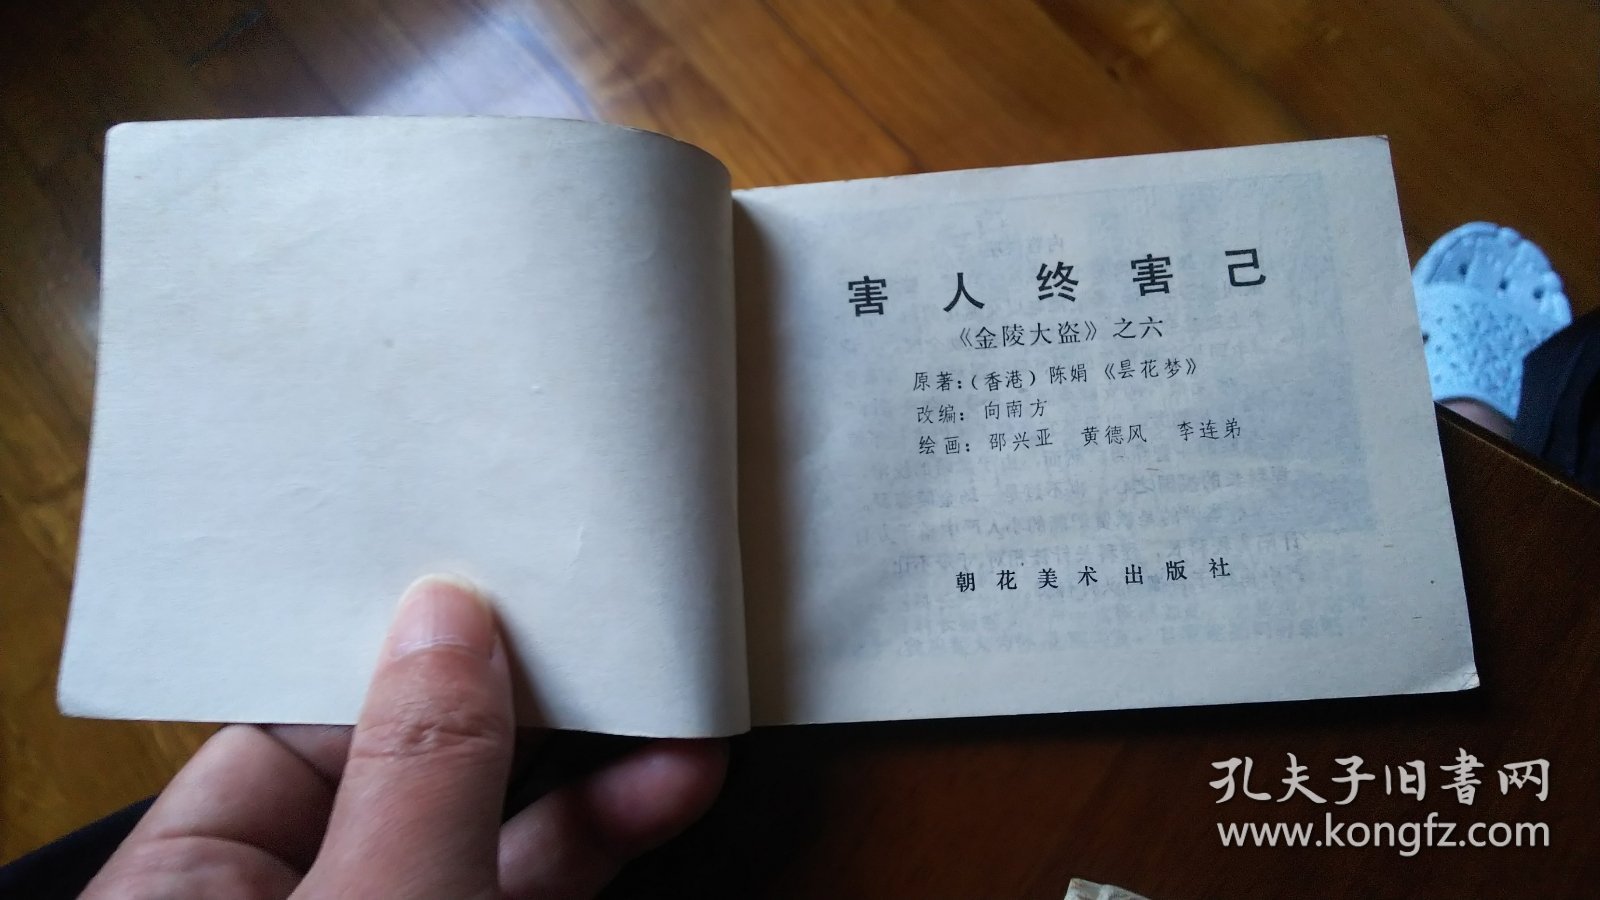 害人终害己
《金陵大盗》之六
原著：（香港）陈娟《昙花梦》
改编：向南方
绘画：邵兴亚 黄德风 李连弟
朝花美术出版社
孔夫子旧书网
www.kongfz.com